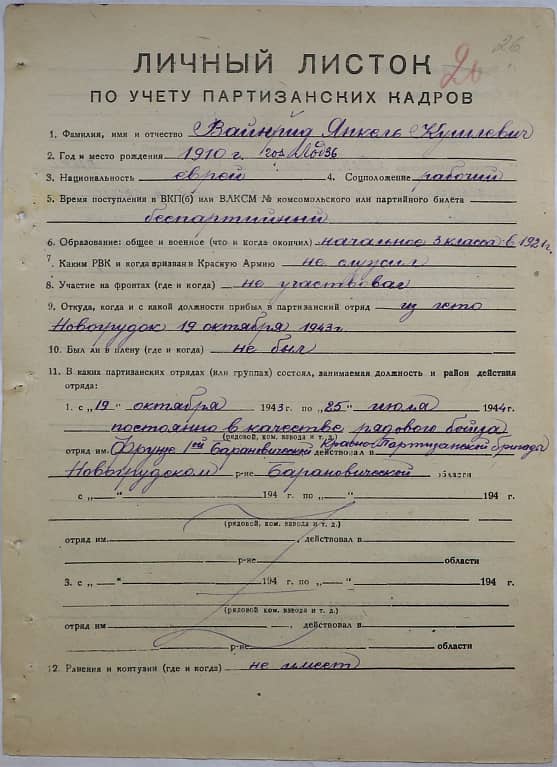 26
20
ЛИЧНЫЙ ЛИСТОК
ПО УЧЕТУ ПАРТИЗАНСКИХ КАДРОВ
1. Фамилия, имя и отчество Вайнрид Янкель Кушлевич
2. Год и место рождения 1910 г. гор.
3. Национальность еврей 4. Соцположение рабочий
5. Время поступления в ВКП(б) или ВЛКСМ № комсомольского или партийного билета
беспартийный
6. Образование: общее и военное (что и когда окончил) начальное 3 класса в 1921 г.
7. Каким РВК и когда призван в Красную Армию не служил
8. Участие на фронтах (где и когда) не участвовал
9. Откуда, когда и с какой должности прибыл в партизанский отряд из гето
Новогрудок 19 октября 1943 г.
10. Был ли в плену (где и когда) не был
11. В каких партизанских отрядах (или группах) состоял, занимаемая должность и район действия
отряда:
1. с „19" октября 1943 г. по „25" июля 1944 г.
постоянно в качестве рядового бойца
(рядовой, ком. взвода и т. д.)
отряд им. Фрунзе 1ой Барановической Красно-Партизанской бригады действовал в
Новогрудском р-не Барановической области
с „ " 194 г. по „ " 194 г.
(рядовой, ком. взвода и т. д.)
отряд им. , действовал в
р-не области
3. с „ " 194 г. по „ " 194 г.
(рядовой, ком. взвода и т. д.)
отряд им , действовал в
р-не области
12. Ранения и контузии (где и когда) не имеет